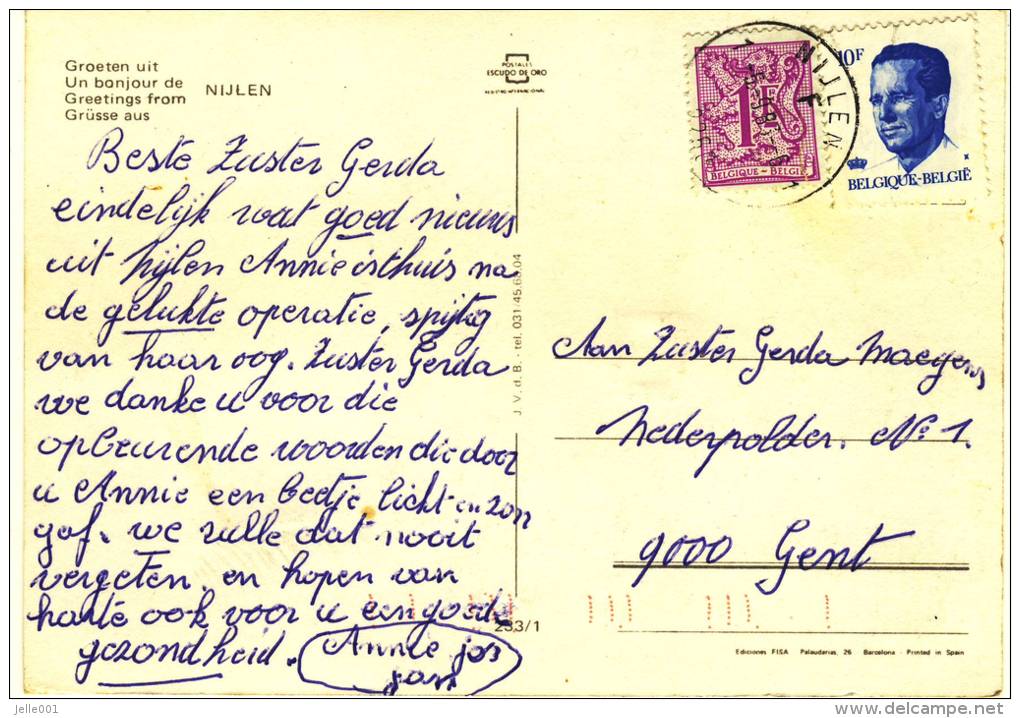 Groeten uit
Un bonjour de
Greetings from
Grüsse aus
NIJLEN
POSTALES
ESCUDO DE ORO
REGISTRO INTERNACIONAL
Beste Zuster Gerda
eindelijk wat goed nieuws
uit Nijlen Annie is thuis na
de gelukte operatie, spijtig
van haar oog. Zuster Gerda
we danke u voor die
opbeurende woorden die door
u Annie een beetje licht en zon
gaf. we zulle dat nooit
vergeten. en hopen van
harte ook voor u een goede
gezondheid.
Annie jos
J.V.d.B. - tel. 031/45.68.04
233/1
1F
BELGIQUE - BELGIË
NIJLEN
F
10F
BELGIQUE-BELGIË
Aan Zuster Gerda Maegens
Nederpolder. No 1.
9000 Gent
Ediciones FISA Palaudarias, 26 Barcelona - Printed in Spain
jelle001
www.delcampe.net